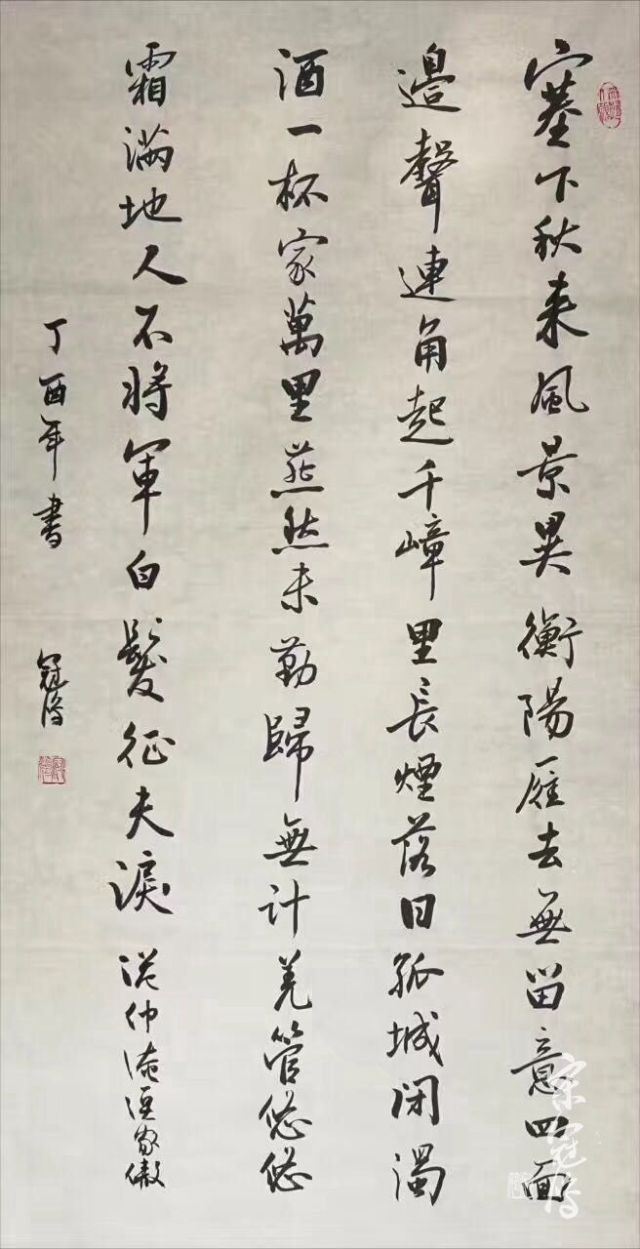 塞下秋来風景異衡陽雁去無留意四面
邊聲連角起千嶂里長煙落日孤城闭濁
酒一杯家萬里燕然未勤歸無計羌管悠悠
霜满地人不将軍白髮征夫淚 范仲淹渔家傲
丁酉年書 冠
宋冠